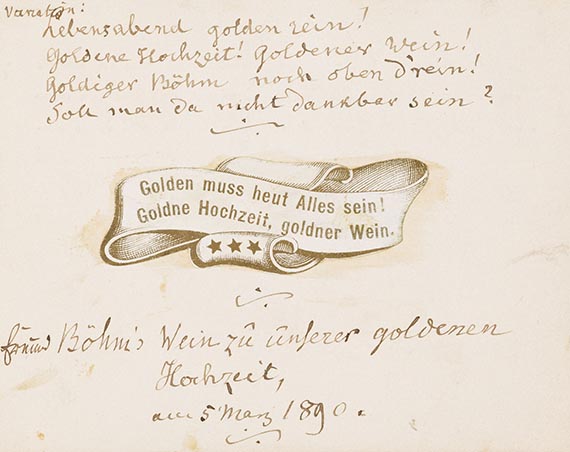 Variation:
Lebensabend golden rein!
Goldene Hochzeit! Goldener Wein!
Goldiger Böhm noch oben d'rein!
Soll man da nicht dankbar sein?
Golden muss heut Alles sein!
Goldne Hochzeit, goldner Wein.
Freund Böhm's Wein zu unserer goldenen
Hochzeit,
am 5 März 1890.